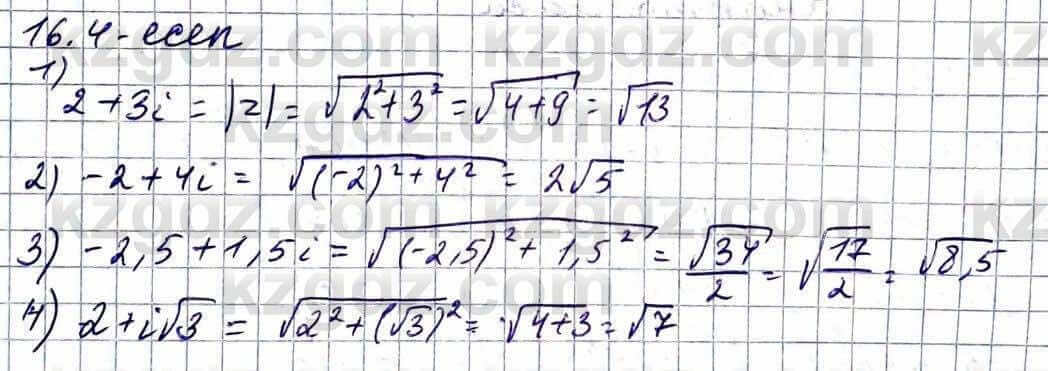 16.4-есеп
1)
2+3i = |z| = √(2²+3²) = √(4+9) = √13
2) -2+4i = √((-2)²+4²) = 2√5
3) -2,5+1,5i = √((-2,5)²+1,5²) = √34/2 = √(17/2) = √8,5
4) 2+i√3 = √(2²+(√3)²) = √(4+3) = √7
kzgdz.com